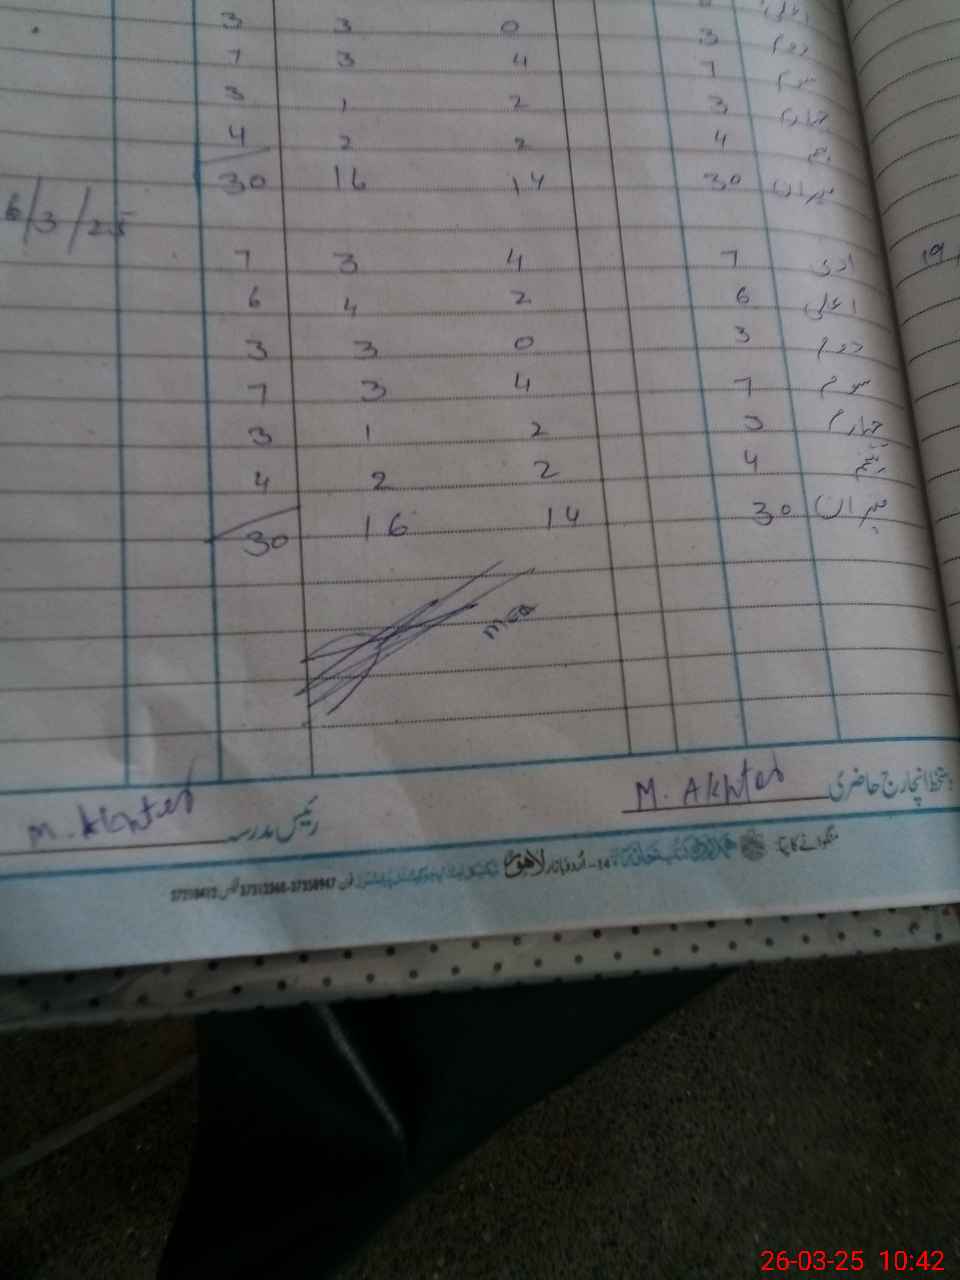 3 3 0 3 دوم
7 3 4 7 سوم
3 1 2 3 چہارم
4 2 2 4 پنجم
30 16 14 30 میزان
6/3/25
7 3 4 7 ادنی
19
6 4 2 6 اعلی
3 3 0 3 دوم
7 3 4 7 سوم
3 1 2 3 چہارم
4 2 2 4 پنجم
30 16 14 30 میزان
دستخط انچارج حاضری M. Akhter
رئیس مدرسہ M. Akhter
اُردو بازار لاہور فون
26-03-25 10:42